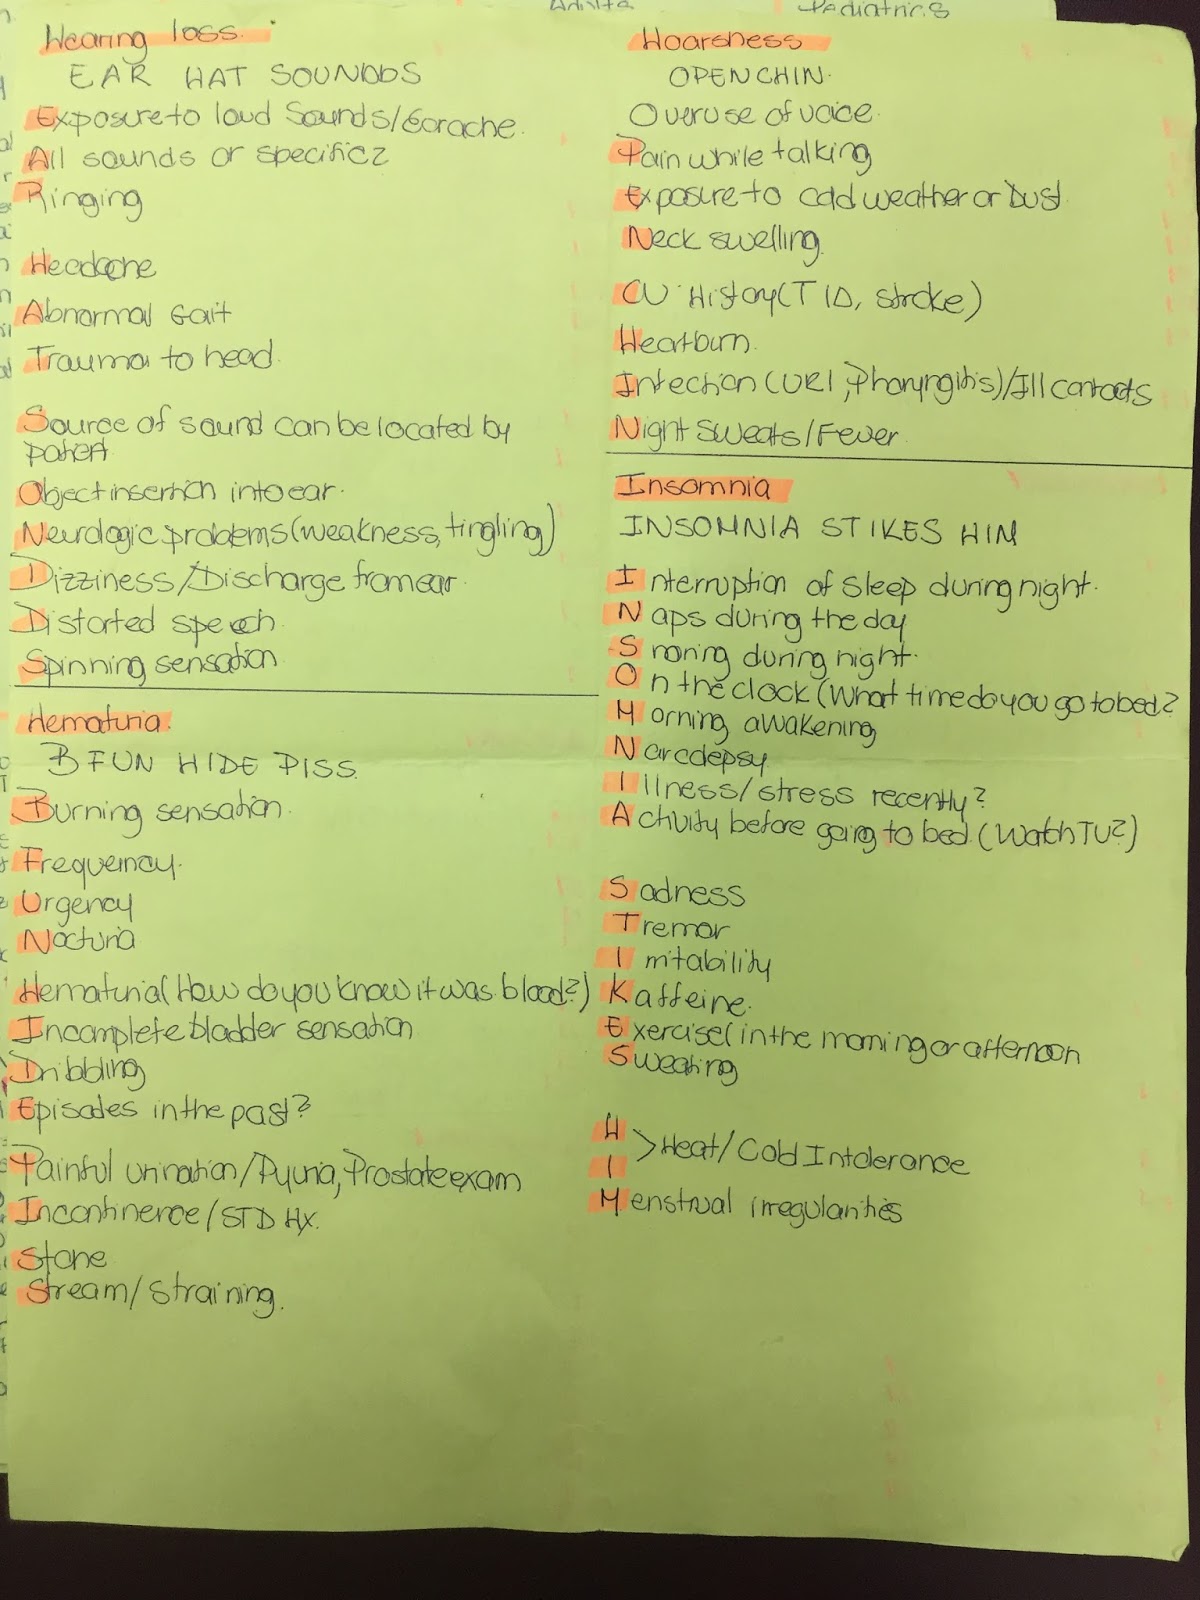 Adults
Pediatrics
Hearing loss.
EAR HAT SOUNDDS
Exposure to loud Sounds/Earache.
All sounds or specific?
Ringing
Headache
Abnormal Gait
Trauma to head.
Source of sound can be located by
patient
Object insertion into ear.
Neurologic problems (weakness, tingling)
Dizziness/Discharge from ear.
Distorted speech.
Spinning sensation
Hematuria.
B FUN HIDE PISS.
Burning sensation.
Frequency.
Urgency
Nocturia
Hematuria (How do you know it was blood?)
Incomplete bladder sensation
Dribbling
Episodes in the past?
Painful urination/Pyuria, Prostate exam
Incontinence/STD Hx.
Stone
Stream/Straining.
Hoarsness
OPEN CHIN.
Overuse of voice
Pain while talking
Exposure to cold weather or Dust
Neck swelling.
CV History (TIA, stroke)
Heartburn.
Infection (URI, Pharyngitis)/Ill contacts
Night Sweats/Fever
Insomnia
INSOMNIA STIKES HIM
Interruption of sleep during night.
Naps during the day
Snoring during night.
On the clock (What time do you go to bed?
Morning awakening
Narcolepsy
Illness/stress recently?
Activity before going to bed (Watch TV?)
Sadness
Tremor
Irritability
Kaffeine.
Exercise (in the morning or afternoon
Sweating
H
I > Heat/Cold Intolerance
Menstrual irregularities